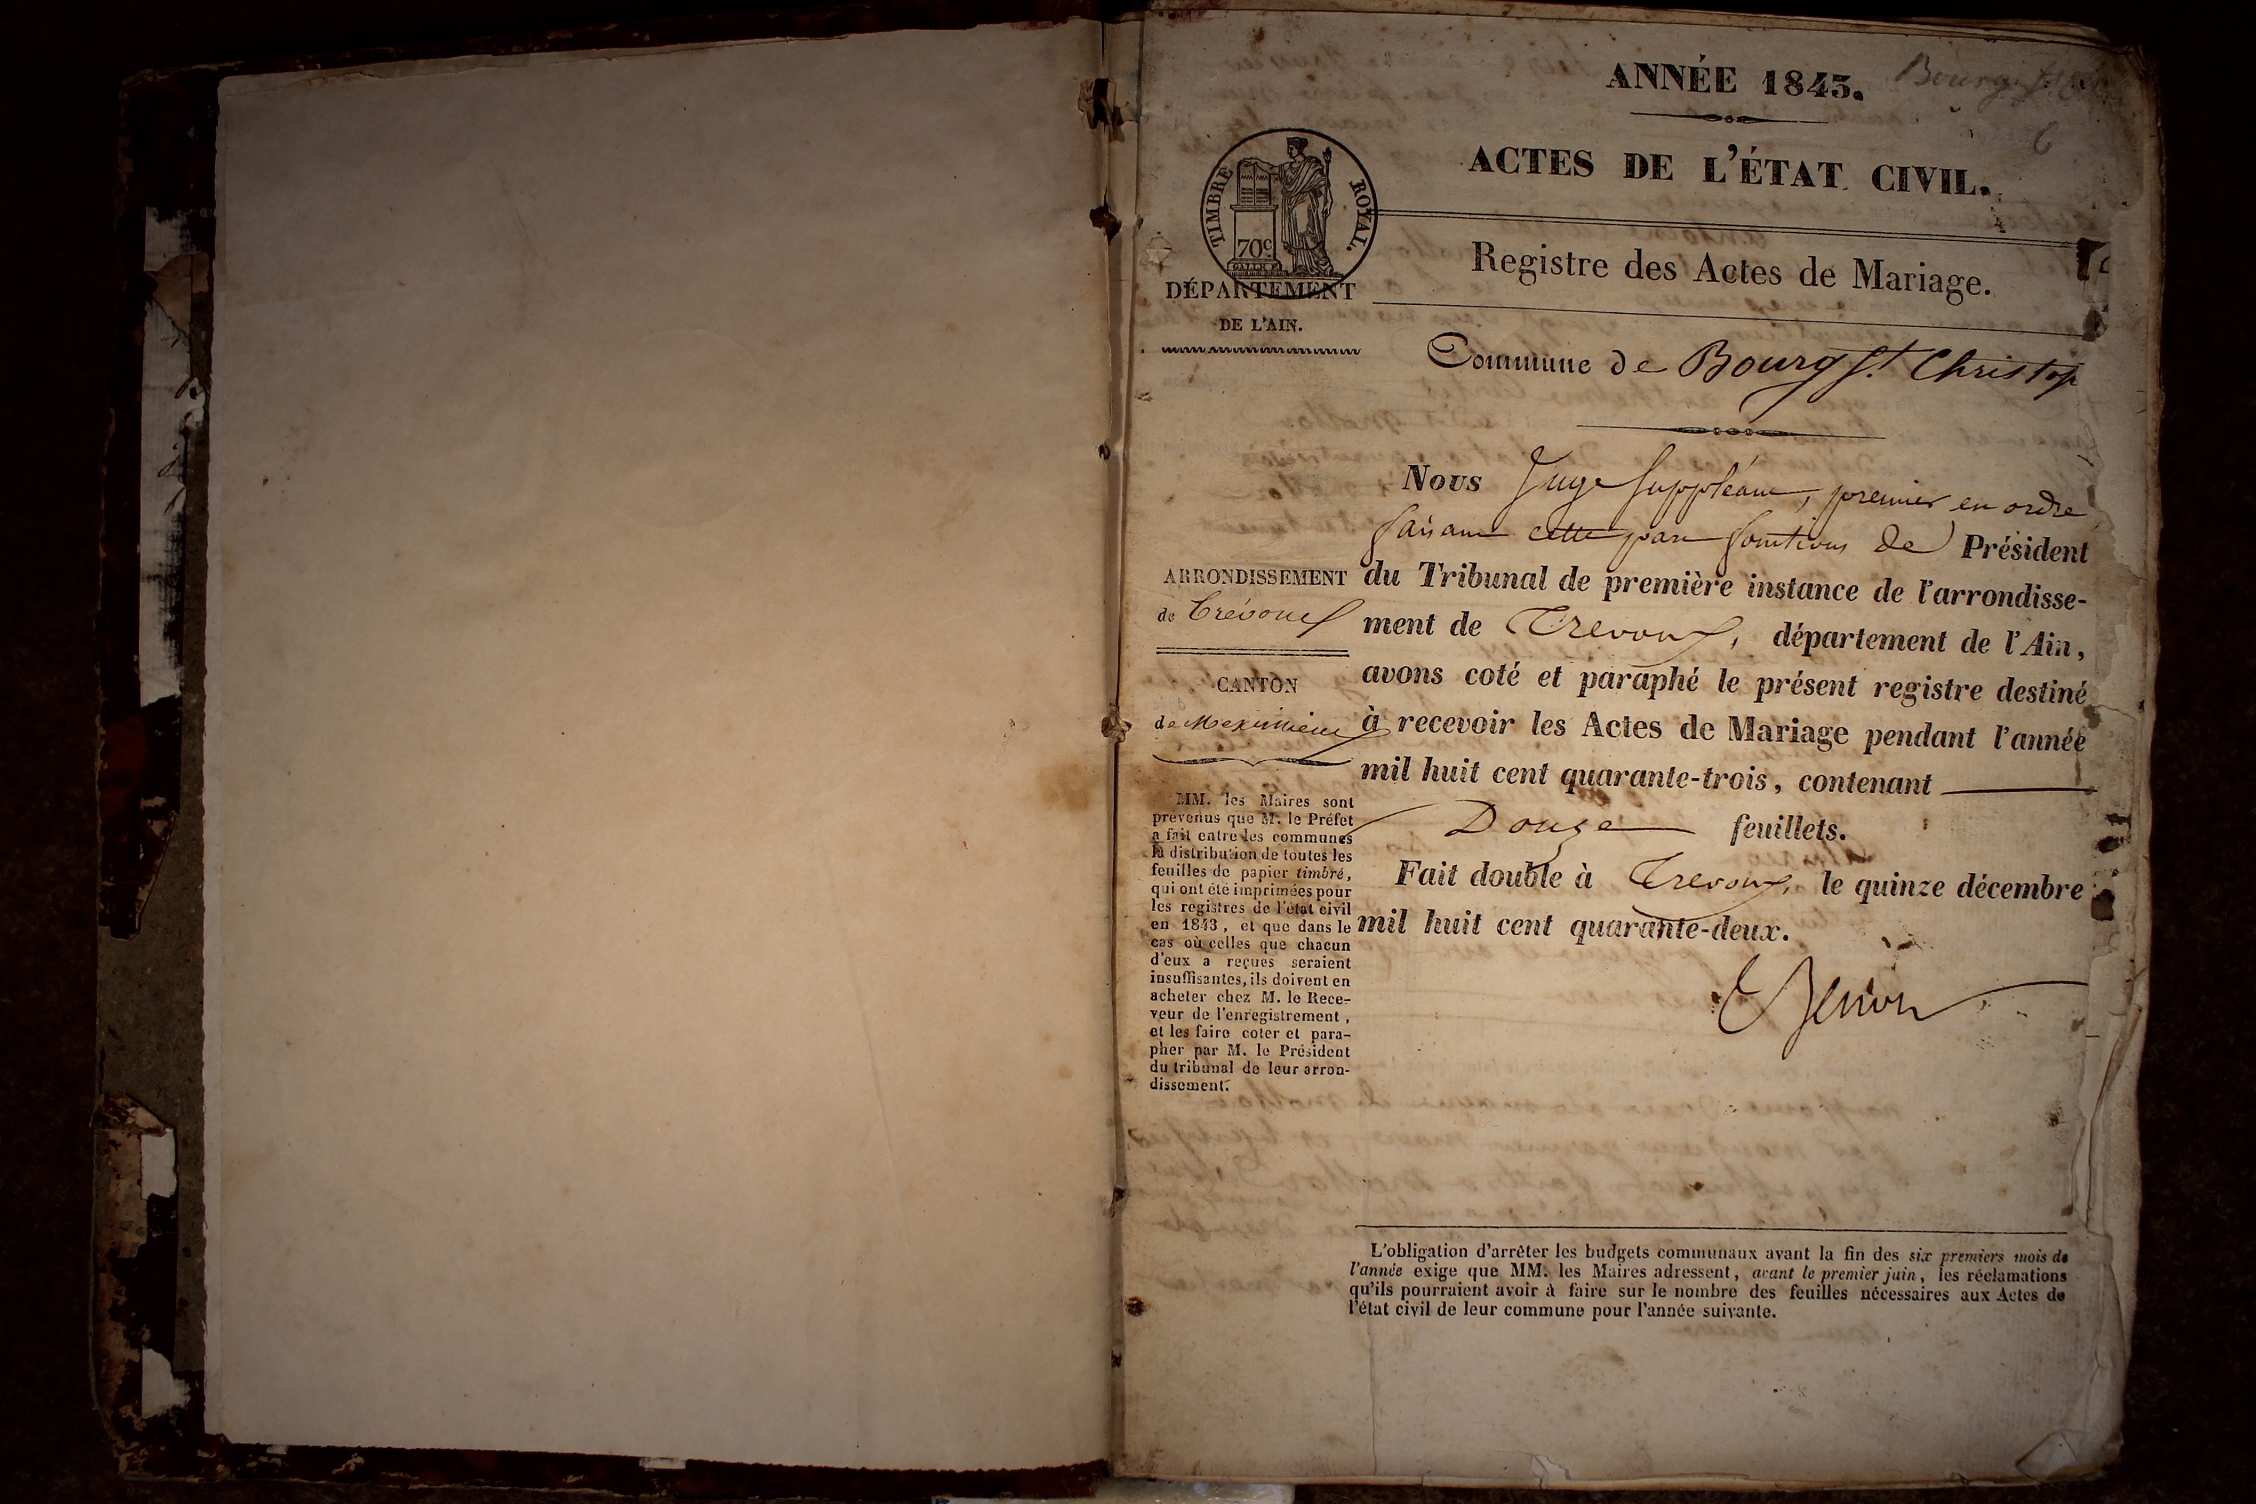 ANNÉE 1843.
Bourg St
6
ACTES DE L'ÉTAT CIVIL.
TIMBRE ROYAL.
70c
Registre des Actes de Mariage.
DÉPARTEMENT
DE L'AIN.
Commune de Bourg St Christop
Nous Juge suppléant, premier en ordre
faisant cette part fonctions de Président
du Tribunal de première instance de l'arrondisse-
ment de Trevoux, département de l'Ain,
avons coté et paraphé le présent registre destiné
à recevoir les Actes de Mariage pendant l'année
mil huit cent quarante-trois, contenant
Douze feuillets.
Fait double à Trevoux, le quinze décembre
mil huit cent quarante-deux.
ARRONDISSEMENT
de Trévoux
CANTON
de Meximieux
MM. les Maires sont
prévenus que M. le Préfet
a fait entre les communes
la distribution de toutes les
feuilles de papier timbré,
qui ont été imprimées pour
les registres de l'état civil
en 1843, et que dans le
cas où celles que chacun
d'eux a reçues seraient
insuffisantes, ils doivent en
acheter chez M. le Rece-
veur de l'enregistrement,
et les faire coter et para-
pher par M. le Président
du tribunal de leur arron-
dissement.
L'obligation d'arrêter les budgets communaux avant la fin des six premiers mois de
l'année exige que MM. les Maires adressent, avant le premier juin, les réclamations
qu'ils pourraient avoir à faire sur le nombre des feuilles nécessaires aux Actes de
l'état civil de leur commune pour l'année suivante.